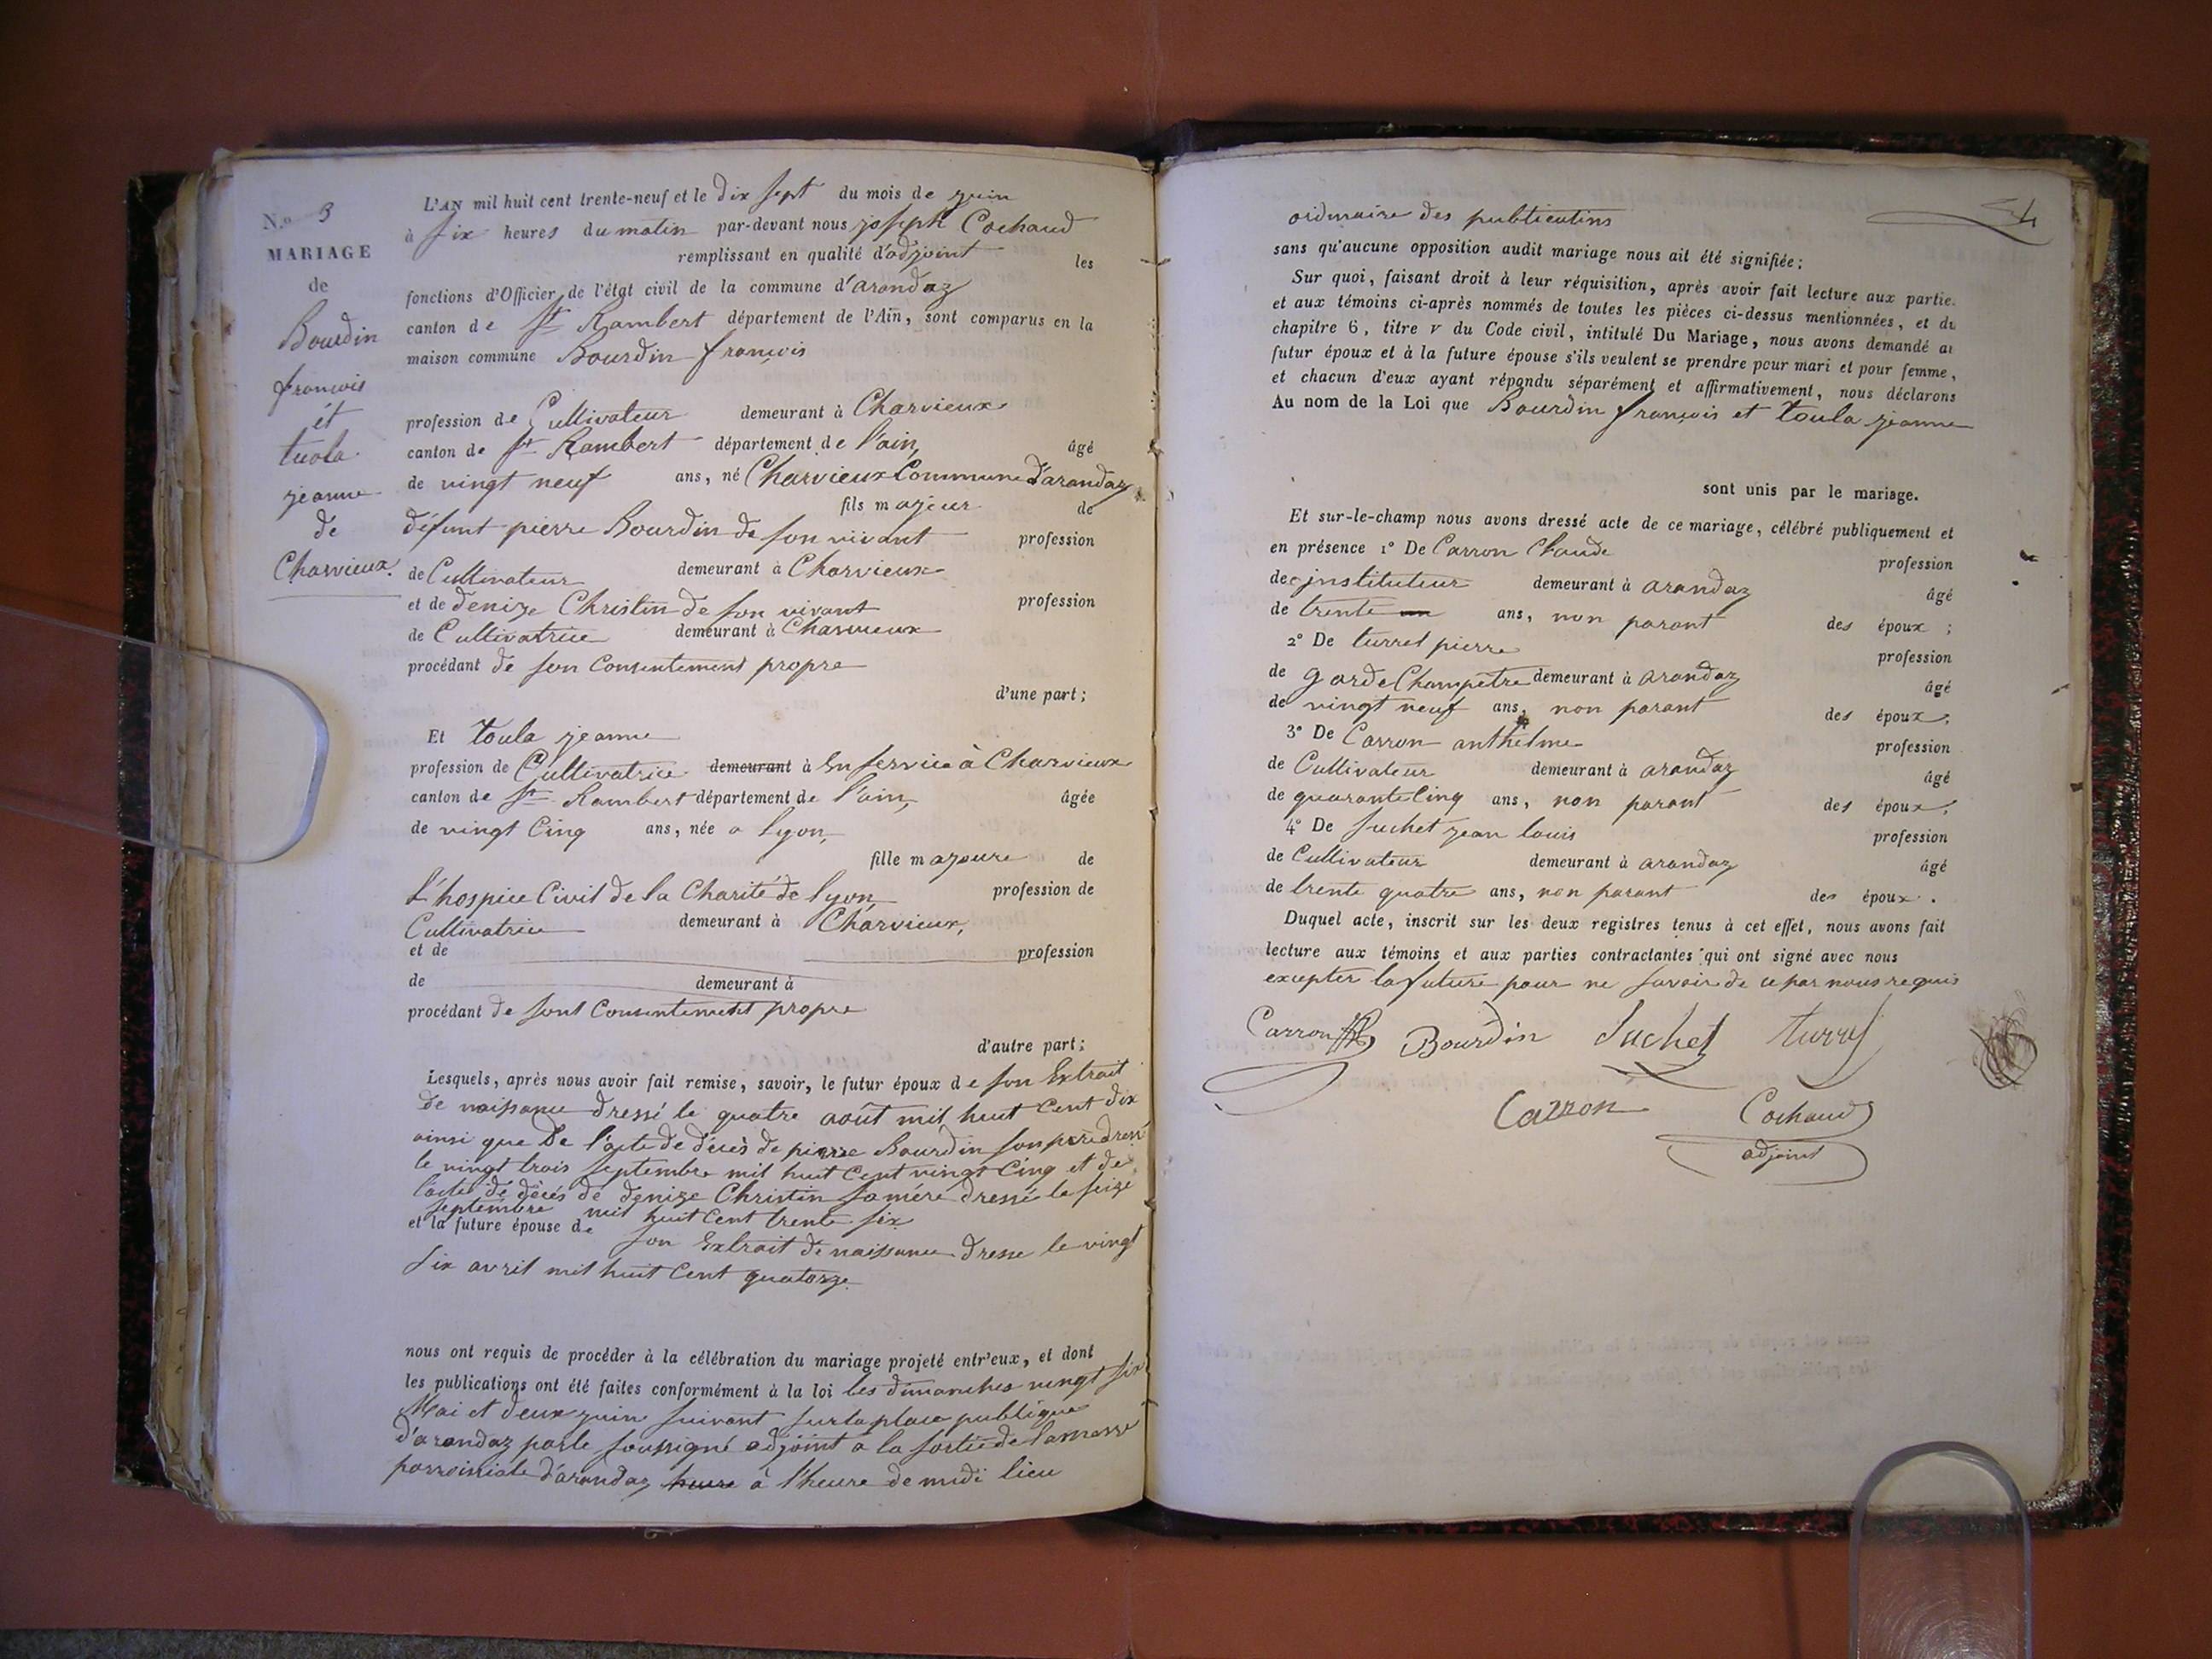 N.o 3
MARIAGE
de
Bourdin
françois
ét
tuola
jeanne
de
Charvieux.
L'AN mil huit cent trente-neuf et le dix sept du mois de juin
à six heures du matin par-devant nous joseph Cochaud
remplissant en qualité d'adjoint les
fonctions d'Officier de l'état civil de la commune d'arandaz
canton de St Rambert département de l'Ain, sont comparus en la
maison commune Bourdin françois
profession de Cultivateur demeurant à Charvieux
canton de St Rambert département de l'ain, âgé
de vingt neuf ans, né Charvieux Commune d'arandaz
fils majeur de
défunt pierre Bourdin de son vivant profession
de Cultivateur demeurant à Charvieux
et de denize Christin de son vivant profession
de Cultivatrice demeurant à Charvieux
procédant de son Consentement propre
d'une part;
Et toula jeanne
profession de Cultivatrice demeurant à En service à Charvieux
canton de St Rambert département de l'ain, âgée
de vingt Cinq ans, née a lyon,
fille majeure de
L'hospice Civil de la Charité de lyon profession de
Cultivatrice demeurant à Charvieux,
et de profession
de demeurant à
procédant de sont Consentement propre
d'autre part;
Lesquels, après nous avoir fait remise, savoir, le futur époux de son Extrait
de naissance dressé le quatre août mil huit Cent dix
ainsi que De l'acte de décès de pierre Bourdin son père dressé
le vingt trois septembre mil huit Cent vingt Cinq et de
l'acte de décès de denize Christin sa mére dressé le seize
septembre mil huit Cent trente six
et la future épouse de son Extrait de naissance dresse le vingt
six avril mil huit Cent quatorze.
nous ont requis de procéder à la célébration du mariage projeté entr'eux, et dont
les publications ont été faites conformément à la loi les dimanches vingt six
Mai et deux juin suivant sur la place publique
d'arandaz par le soussigné adjoint a la sortie de la messe
parroissiale d'arandaz heure à l'heure de midi lieu
4
ordinaire des publications
sans qu'aucune opposition audit mariage nous ait été signifiée;
Sur quoi, faisant droit à leur réquisition, après avoir fait lecture aux partie
et aux témoins ci-après nommés de toutes les pièces ci-dessus mentionnées, et du
chapitre 6, titre v du Code civil, intitulé Du Mariage, nous avons demandé au
futur époux et à la future épouse s'ils veulent se prendre pour mari et pour femme,
et chacun d'eux ayant répondu séparément et affirmativement, nous déclarons
Au nom de la Loi que Bourdin françois et toula jeanne
sont unis par le mariage.
Et sur-le-champ nous avons dressé acte de ce mariage, célébré publiquement et
en présence 1° De Carron Claude profession
de instituteur demeurant à arandaz âgé
de trente ans, non parant des époux;
2° De turrel pierre profession
de garde Champetre demeurant à arandaz âgé
de vingt neuf ans, non parant des époux;
3° De Carron anthelme profession
de Cultivateur demeurant à arandaz âgé
de quarante Cinq ans, non parant des époux;
4° De Suchet jean louis profession
de Cultivateur demeurant à arandaz âgé
de trente quatre ans, non parant des époux.
Duquel acte, inscrit sur les deux registres tenus à cet effet, nous avons fait
lecture aux témoins et aux parties contractantes qui ont signé avec nous
excepter la future pour ne savoir de ce par nous requis
Carron Bourdin Suchet turrel
Carron Cochaud
adjoint